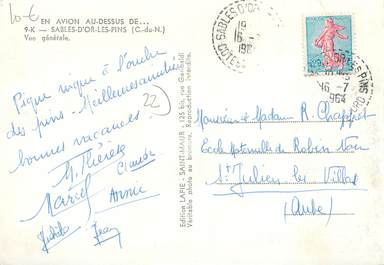 10-€
EN AVION AU-DESSUS DE...
9-K — SABLES-D'OR-LES-PINS (C.-du-N.)
Vue générale.
Pique nique à l'ombre
des pins. Meilleures amitiés
bonnes vacances.
22
M. Thérèse
Claude
Marcel
Annie
Jean
Edition LAPIE - SAINT-MAUR - 125 bis, rue Garibaldi
Véritable photo au bromure. Reproduction interdite.
SABLES D'OR
19
16-7
CÔTES DU NORD
16-7
1964
Monsieur et Madame R. Chappat
Ecole Maternelle de Robin
St Julien les Villas
(Aube)